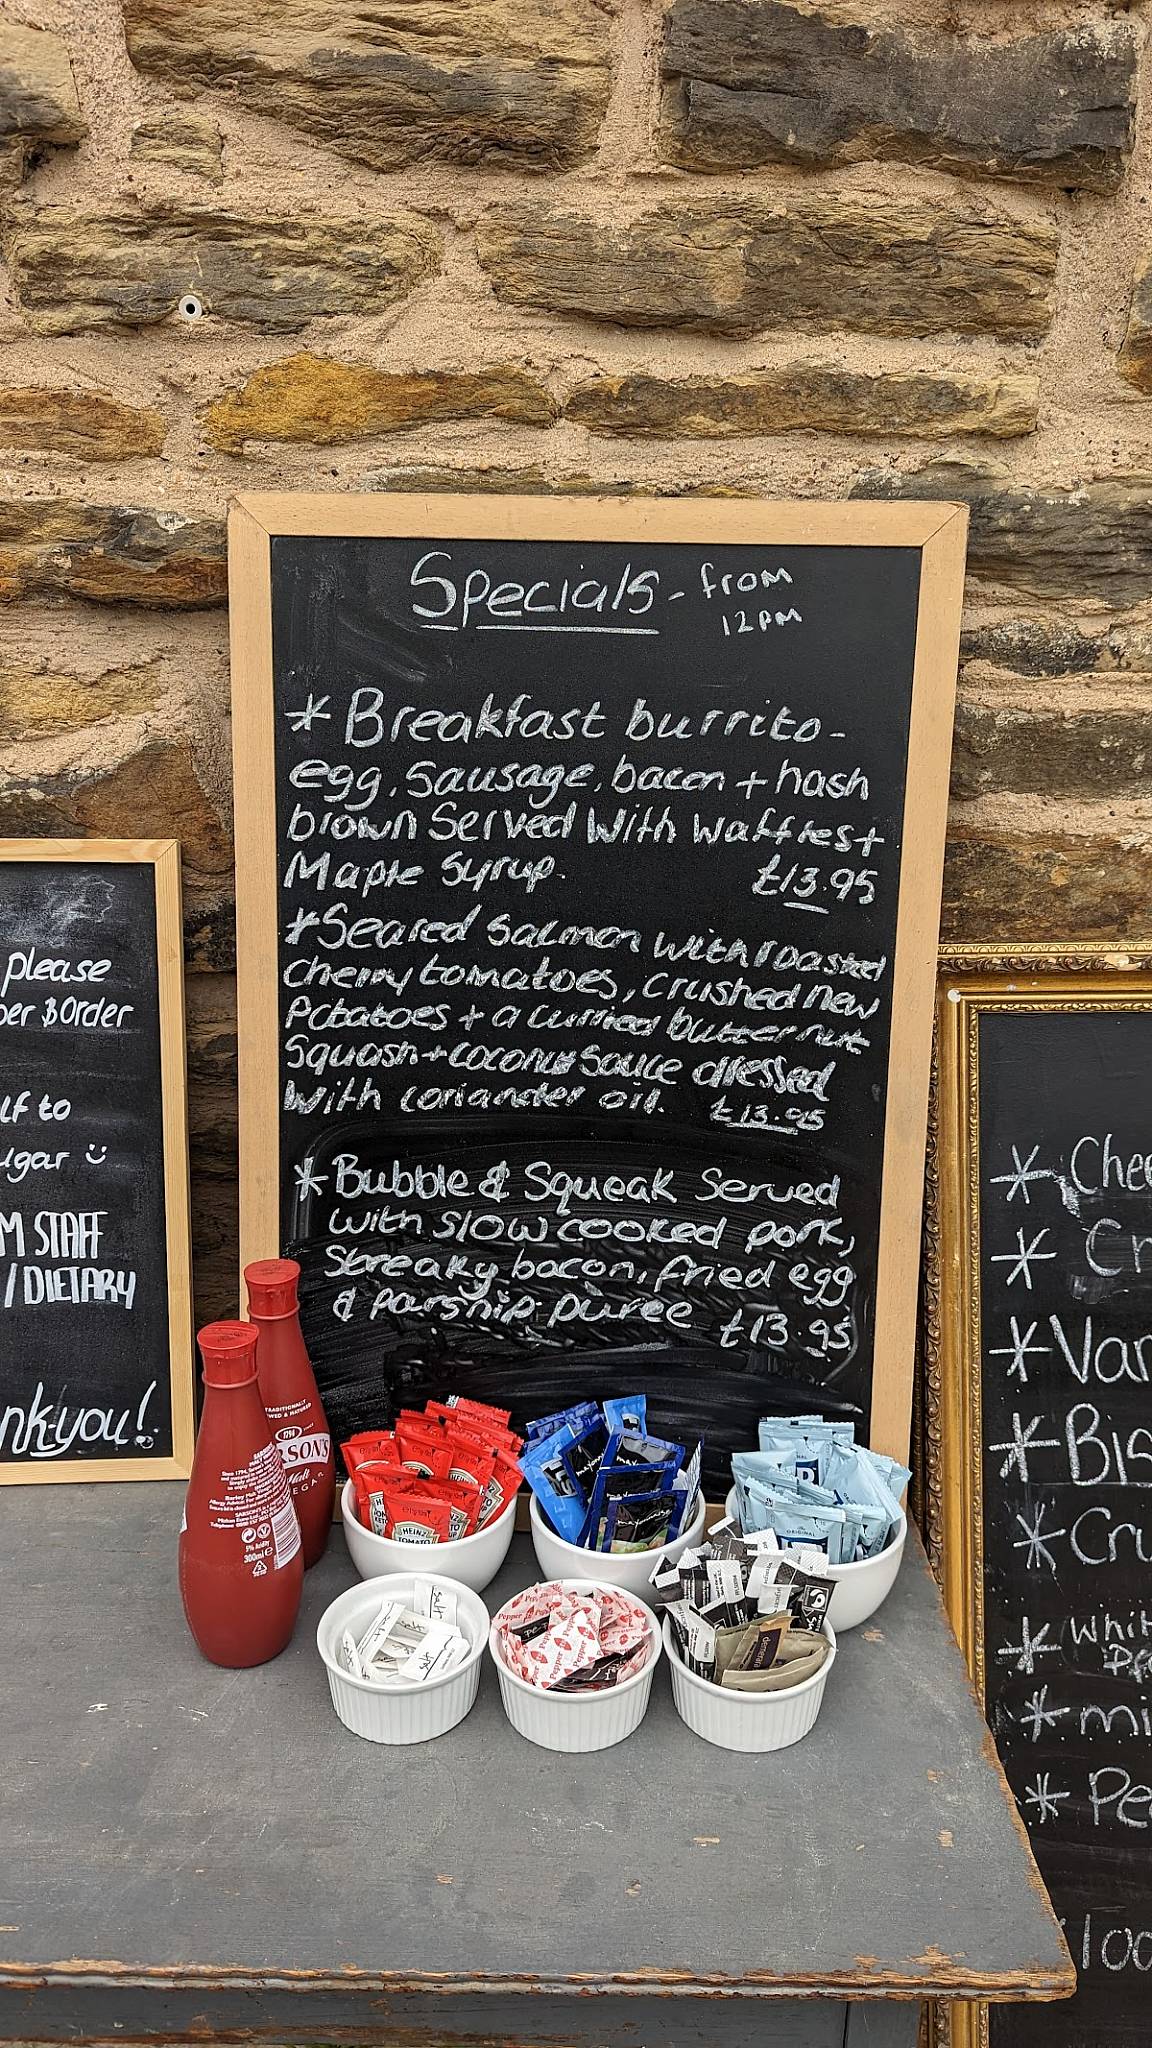 Specials - from
12pm
* Breakfast burrito -
egg, Sausage, bacon + hash
brown Served With Waffles +
Maple Syrup. £13.95
* Seared Salmon with roasted
cherry tomatoes, crushed new
Potatoes + a curried butter nut
Squash + coconut Sauce dressed
With coriander oil. £13.95
* Bubble & Squeak Served
with slow cooked pork,
Streaky bacon, fried egg
& parsnip puree £13.95
please
order
lf to
ugar
STAFF
/ DIETARY
nk you!
* Chee
* Cr
* Van
* Bis
* Cru
* Whit
* mi
* Pe
100
TRADITIONALLY
1794
RSON'S
Malt
SARSON'S
5% Acidity
300ml e
HEINZ
TOMATO
mayonnaise
ORIGINAL
Salt
Salt
Pepper
Pepper
Pepper
demerara